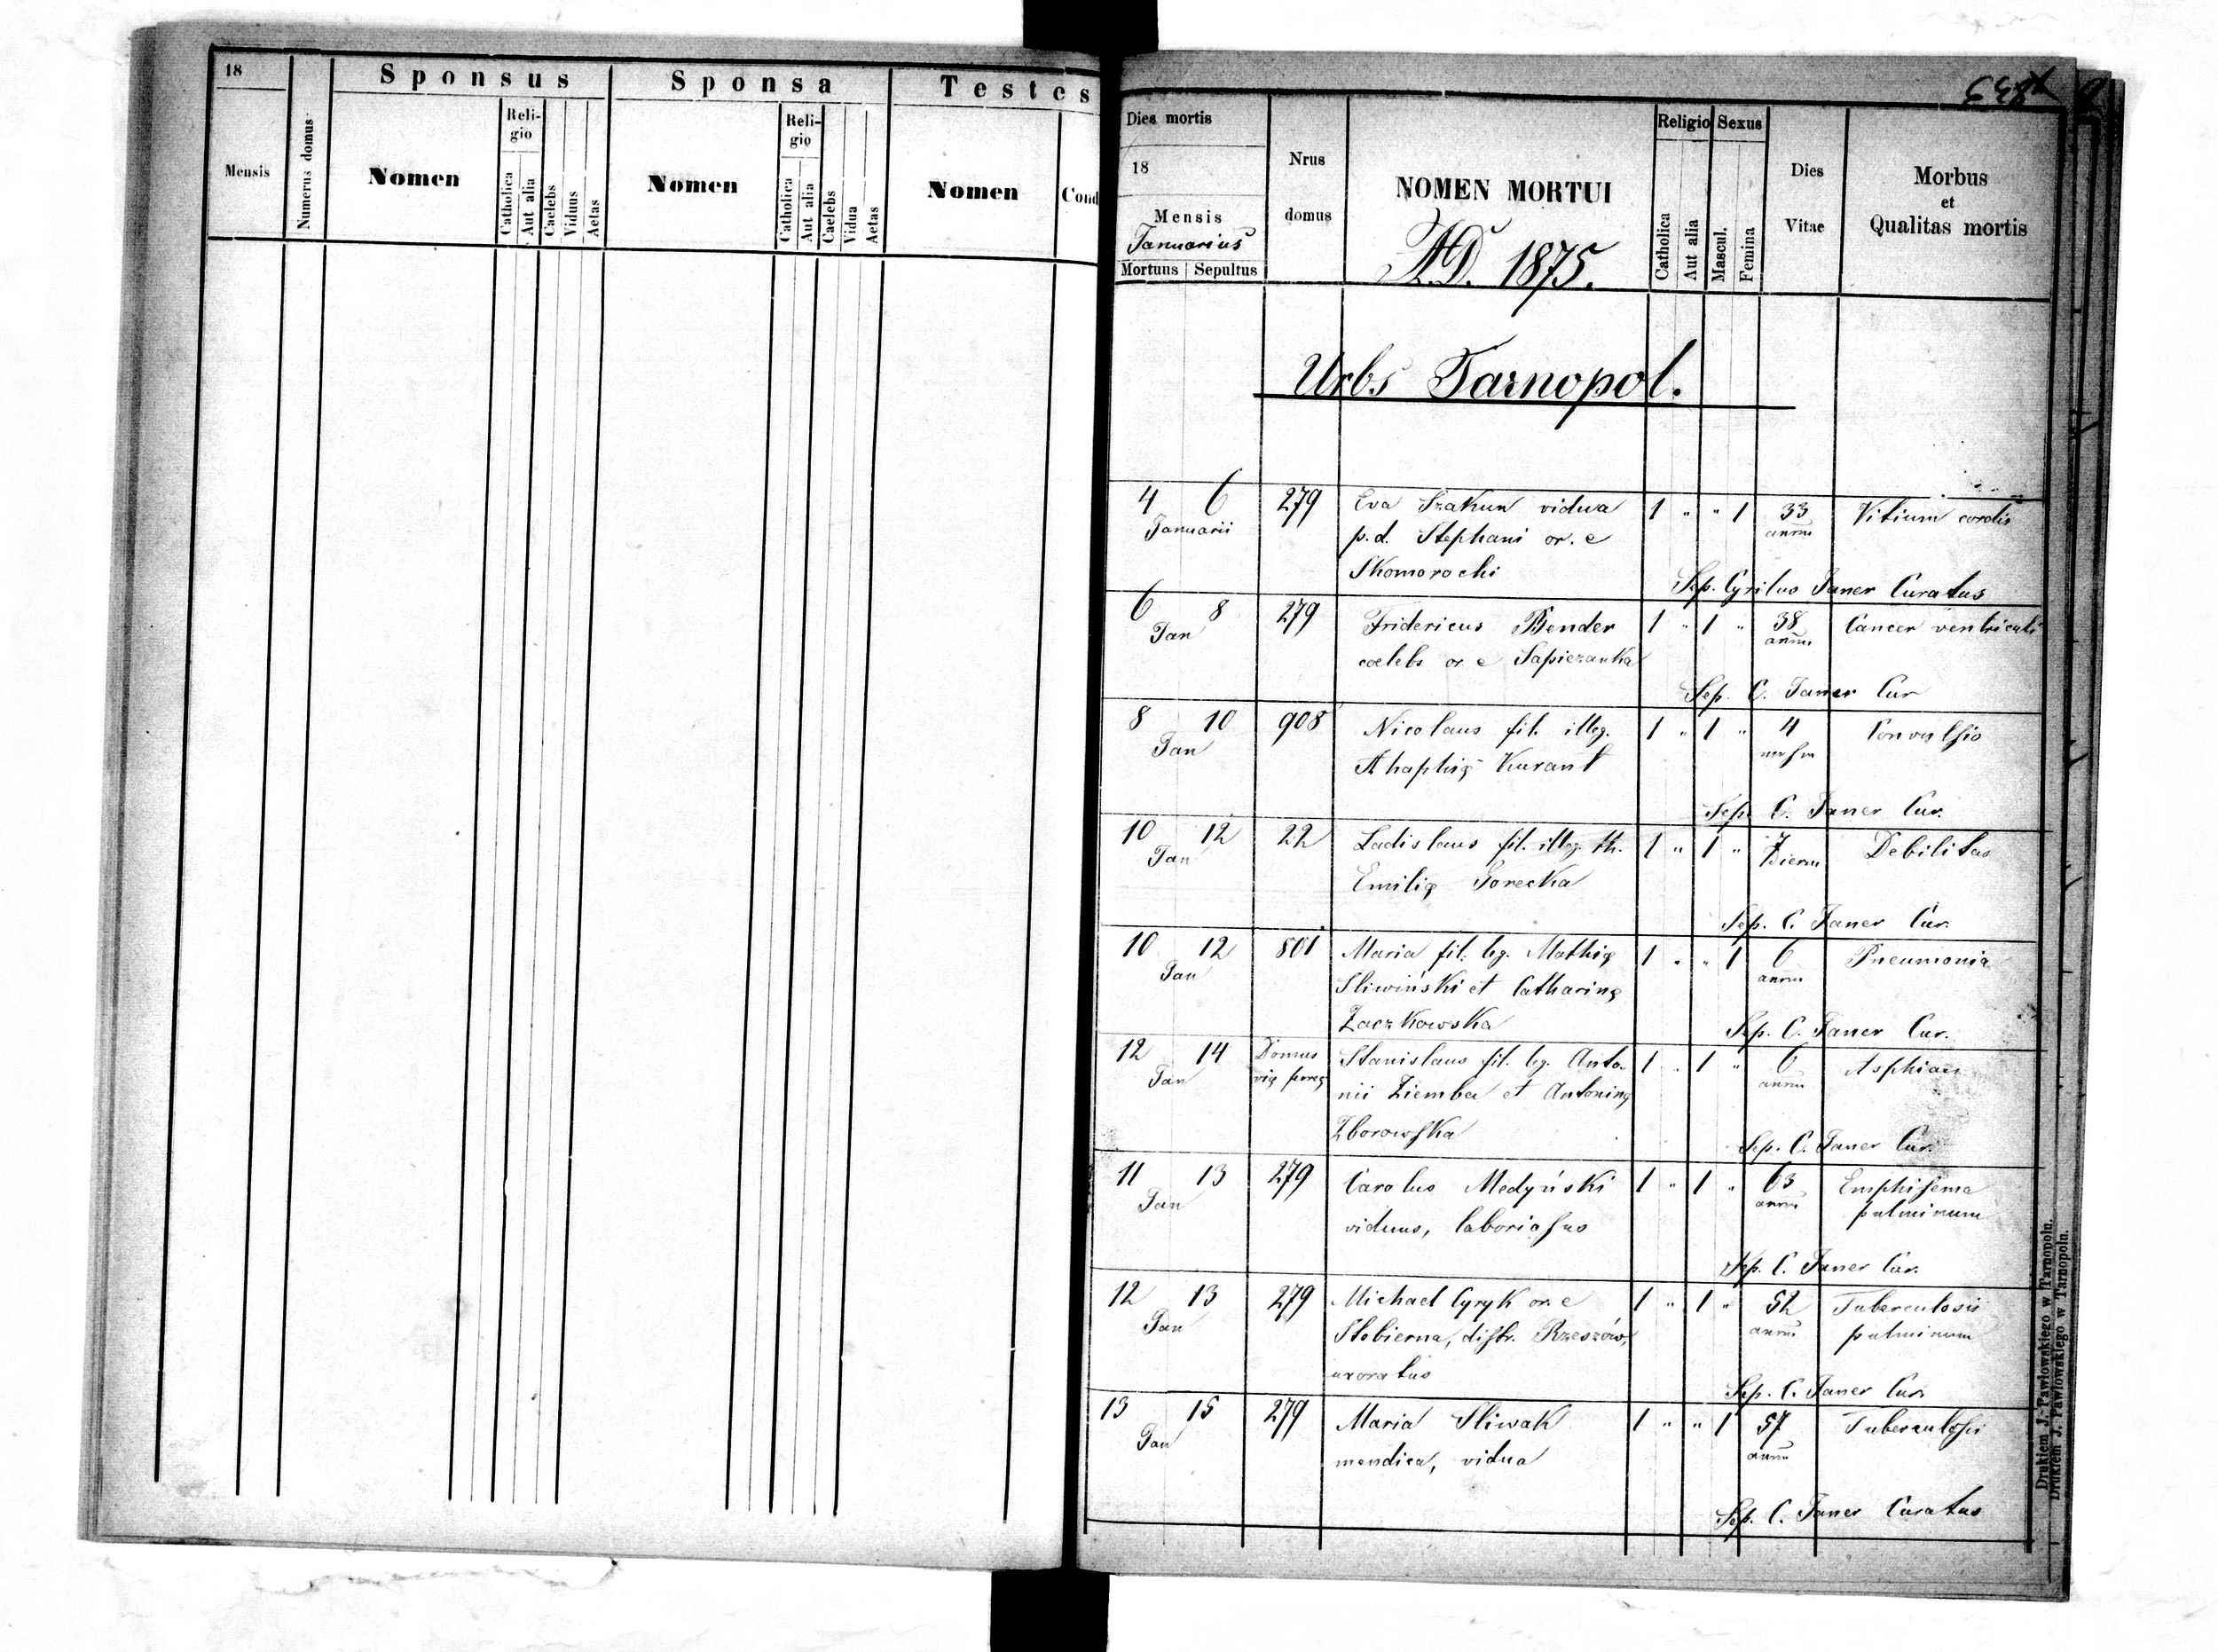 18
Sponsus
Sponsa
Testes
Mensis
Numerus domus
Nomen
Reli-
gio
Catholica
Aut alia
Caelebs
Viduus
Aetas
Nomen
Reli-
gio
Catholica
Aut alia
Caelebs
Vidua
Aetas
Nomen
Cond
Dies mortis
18
Mensis
Januarius
Mortuus
Sepultus
Nrus
domus
NOMEN MORTUI
A.D. 1875.
Religio
Sexus
Catholica
Aut alia
Mascul.
Femina
Dies
Vitae
Morbus
et
Qualitas mortis
Urbs Tarnopol.
4 6 279 Eva Szakun vidua 1 " " 1 33 Vitium cordis
Januarii p.d. Stephani or. e
Skomorochi
Sep. Cyrilus Janer Curatus
6 8 279 Fridericus Bender 1 " 1 " 38 Cancer ventriculi
Jan coelebs or. e Sapiezanka
Sep. C. Janer Cur
8 10 908 Nicolaus fil. illeg. 1 " 1 " 4 Convulsio
Jan Ahaphię Kurant
Sep. C. Janer Cur.
10 12 22 Ladislaus fil. illeg. th. 1 " 1 " 7 Debilitas
Jan Emilię Gorecka dierum
Sep. C. Janer Cur.
10 12 801 Maria fil. leg. Mathię 1 " " 1 6 Pneumonia
Jan Sliwiński et Catharinę
Zaczkowska
Sep. C. Janer Cur.
12 14 Domus Stanislaus fil. leg. Anto- 1 " 1 " 6
Jan vię ferreę nii Ziemba et Antoninę
Zborowska
Sep. C. Janer Cur.
11 13 279 Carolus Medyński 1 " 1 " 63 Emphisema
Jan viduus, laboriosus pulminum
Sep. C. Janer Cur.
12 13 279 Michael Cyryk or. e 1 " 1 " 52 Tuberculosis
Jan Stobierna, distr. Rzeszów, pulminum
uxoratus
Sep. C. Janer Cur.
13 15 279 Maria Sliwak 1 " " 1 57 Tuberculosis
Jan mendica, vidua
Sep. C. Janer Curatus
Drukiem J. Pawłowskiego w Tarnopolu.
Drukiem J. Pawłowskiego w Tarnopolu.